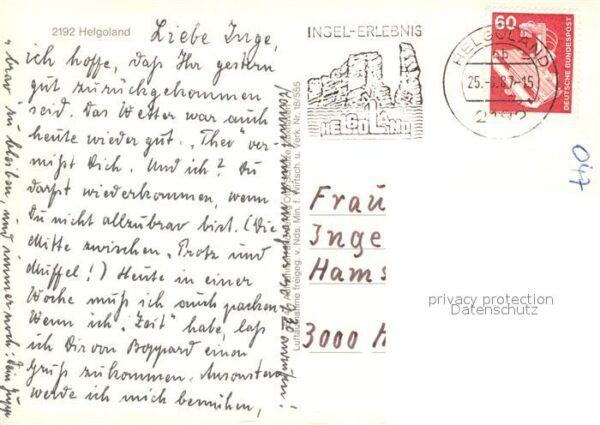 2192 Helgoland
Liebe Inge,
ich hoffe, daß Ihr gestern
gut zurückgekommen
seid. Das Wetter war auch
heute wieder gut. „Theo" ver-
mißt Dich. Und ich? Du
darfst wiederkommen, wenn
Du nicht allzubrav bist. (Die
Mitte zwischen Protz und
Muffel!) Heute in einer
Woche muß ich auch packen.
Wenn ich „Zeit" habe, laß
ich Dir von Boppard einen
Gruß zukommen. Ansonsten
werde ich mich bemühen,
brav zu bleiben, und immer noch: Dein
Luftaufnahme freigeg. v. Nds. Min. f. Wirtsch. u. Verk. Nr. 18/555
INSEL-ERLEBNIS
HELGOLAND
HELGOLAND
25.-.87-15
2192
60
DEUTSCHE BUNDESPOST
Frau
Inge
Hams
3000 H
privacy protection
Datenschutz